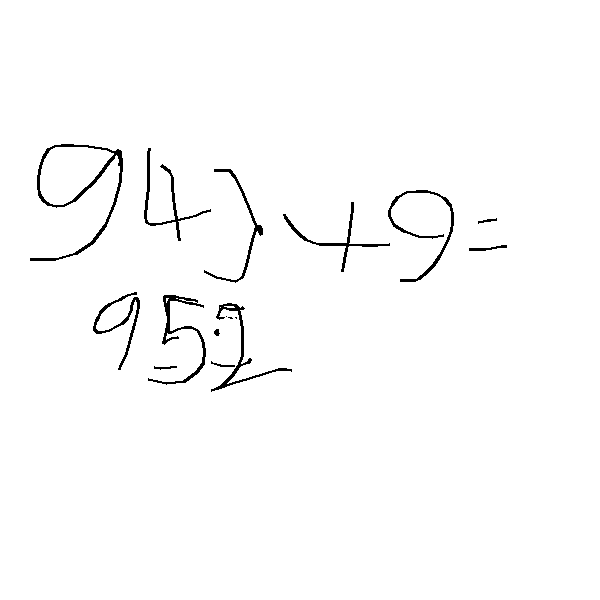 943+9=
952